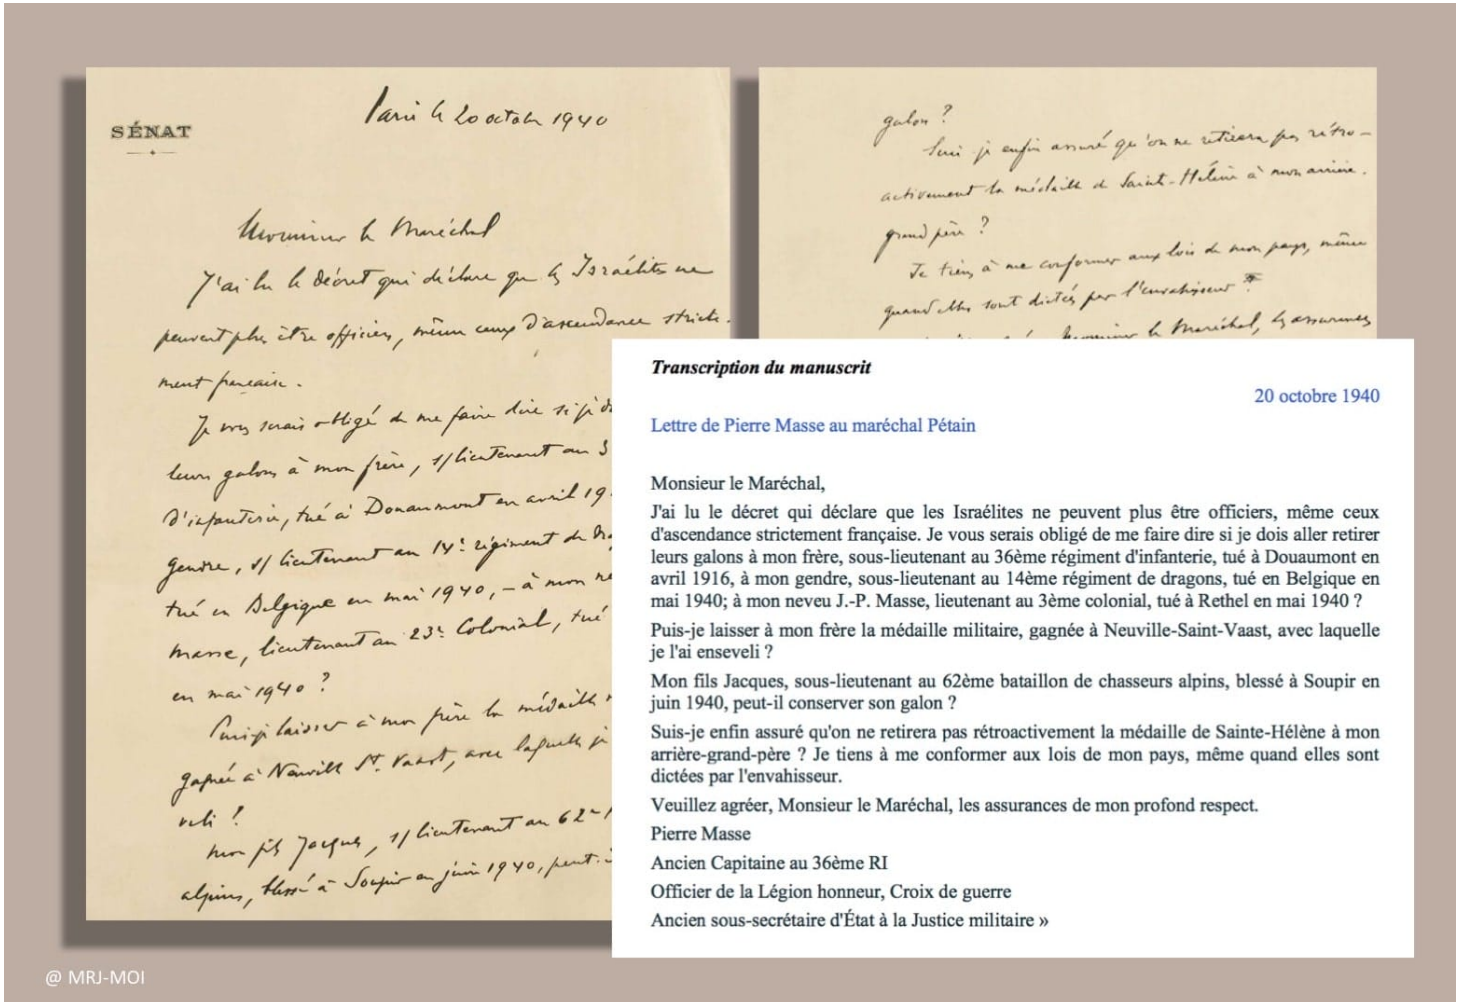 SÉNAT
Paris le 20 octobre 1940
Monsieur le Maréchal
J'ai lu le décret qui déclare que les Israélites ne
peuvent plus être officiers, même ceux d'ascendance stricte-
ment française.
Je vous serais obligé de me faire dire si je d
leurs galons à mon frère, s/lieutenant au 3
d'infanterie, tué à Douaumont en avril 19
gendre, s/lieutenant au 14e régiment de dra
tué en Belgique en mai 1940, - à mon ne
Masse, lieutenant au 23e Colonial, tué
en mai 1940 ?
Puis-je laisser à mon frère la médaille
gagnée à Neuville St. Vaast, avec laquelle je
veli ?
Mon fils Jacques, s/lieutenant au 62e
alpins, blessé à Soupir en juin 1940, peut-
galon ?
Suis-je enfin assuré qu'on ne retirera pas rétro-
activement la médaille de Sainte-Hélène à mon arrière-
grand père ?
Je tiens à me conformer aux lois de mon pays, même
quand elles sont dictées par l'envahisseur
Monsieur le Maréchal, les assurances
Transcription du manuscrit
20 octobre 1940
Lettre de Pierre Masse au maréchal Pétain
Monsieur le Maréchal,
J'ai lu le décret qui déclare que les Israélites ne peuvent plus être officiers, même ceux
d'ascendance strictement française. Je vous serais obligé de me faire dire si je dois aller retirer
leurs galons à mon frère, sous-lieutenant au 36ème régiment d'infanterie, tué à Douaumont en
avril 1916, à mon gendre, sous-lieutenant au 14ème régiment de dragons, tué en Belgique en
mai 1940; à mon neveu J.-P. Masse, lieutenant au 3ème colonial, tué à Rethel en mai 1940 ?
Puis-je laisser à mon frère la médaille militaire, gagnée à Neuville-Saint-Vaast, avec laquelle
je l'ai enseveli ?
Mon fils Jacques, sous-lieutenant au 62ème bataillon de chasseurs alpins, blessé à Soupir en
juin 1940, peut-il conserver son galon ?
Suis-je enfin assuré qu'on ne retirera pas rétroactivement la médaille de Sainte-Hélène à mon
arrière-grand-père ? Je tiens à me conformer aux lois de mon pays, même quand elles sont
dictées par l'envahisseur.
Veuillez agréer, Monsieur le Maréchal, les assurances de mon profond respect.
Pierre Masse
Ancien Capitaine au 36ème RI
Officier de la Légion honneur, Croix de guerre
Ancien sous-secrétaire d'État à la Justice militaire »
@ MRJ-MOI